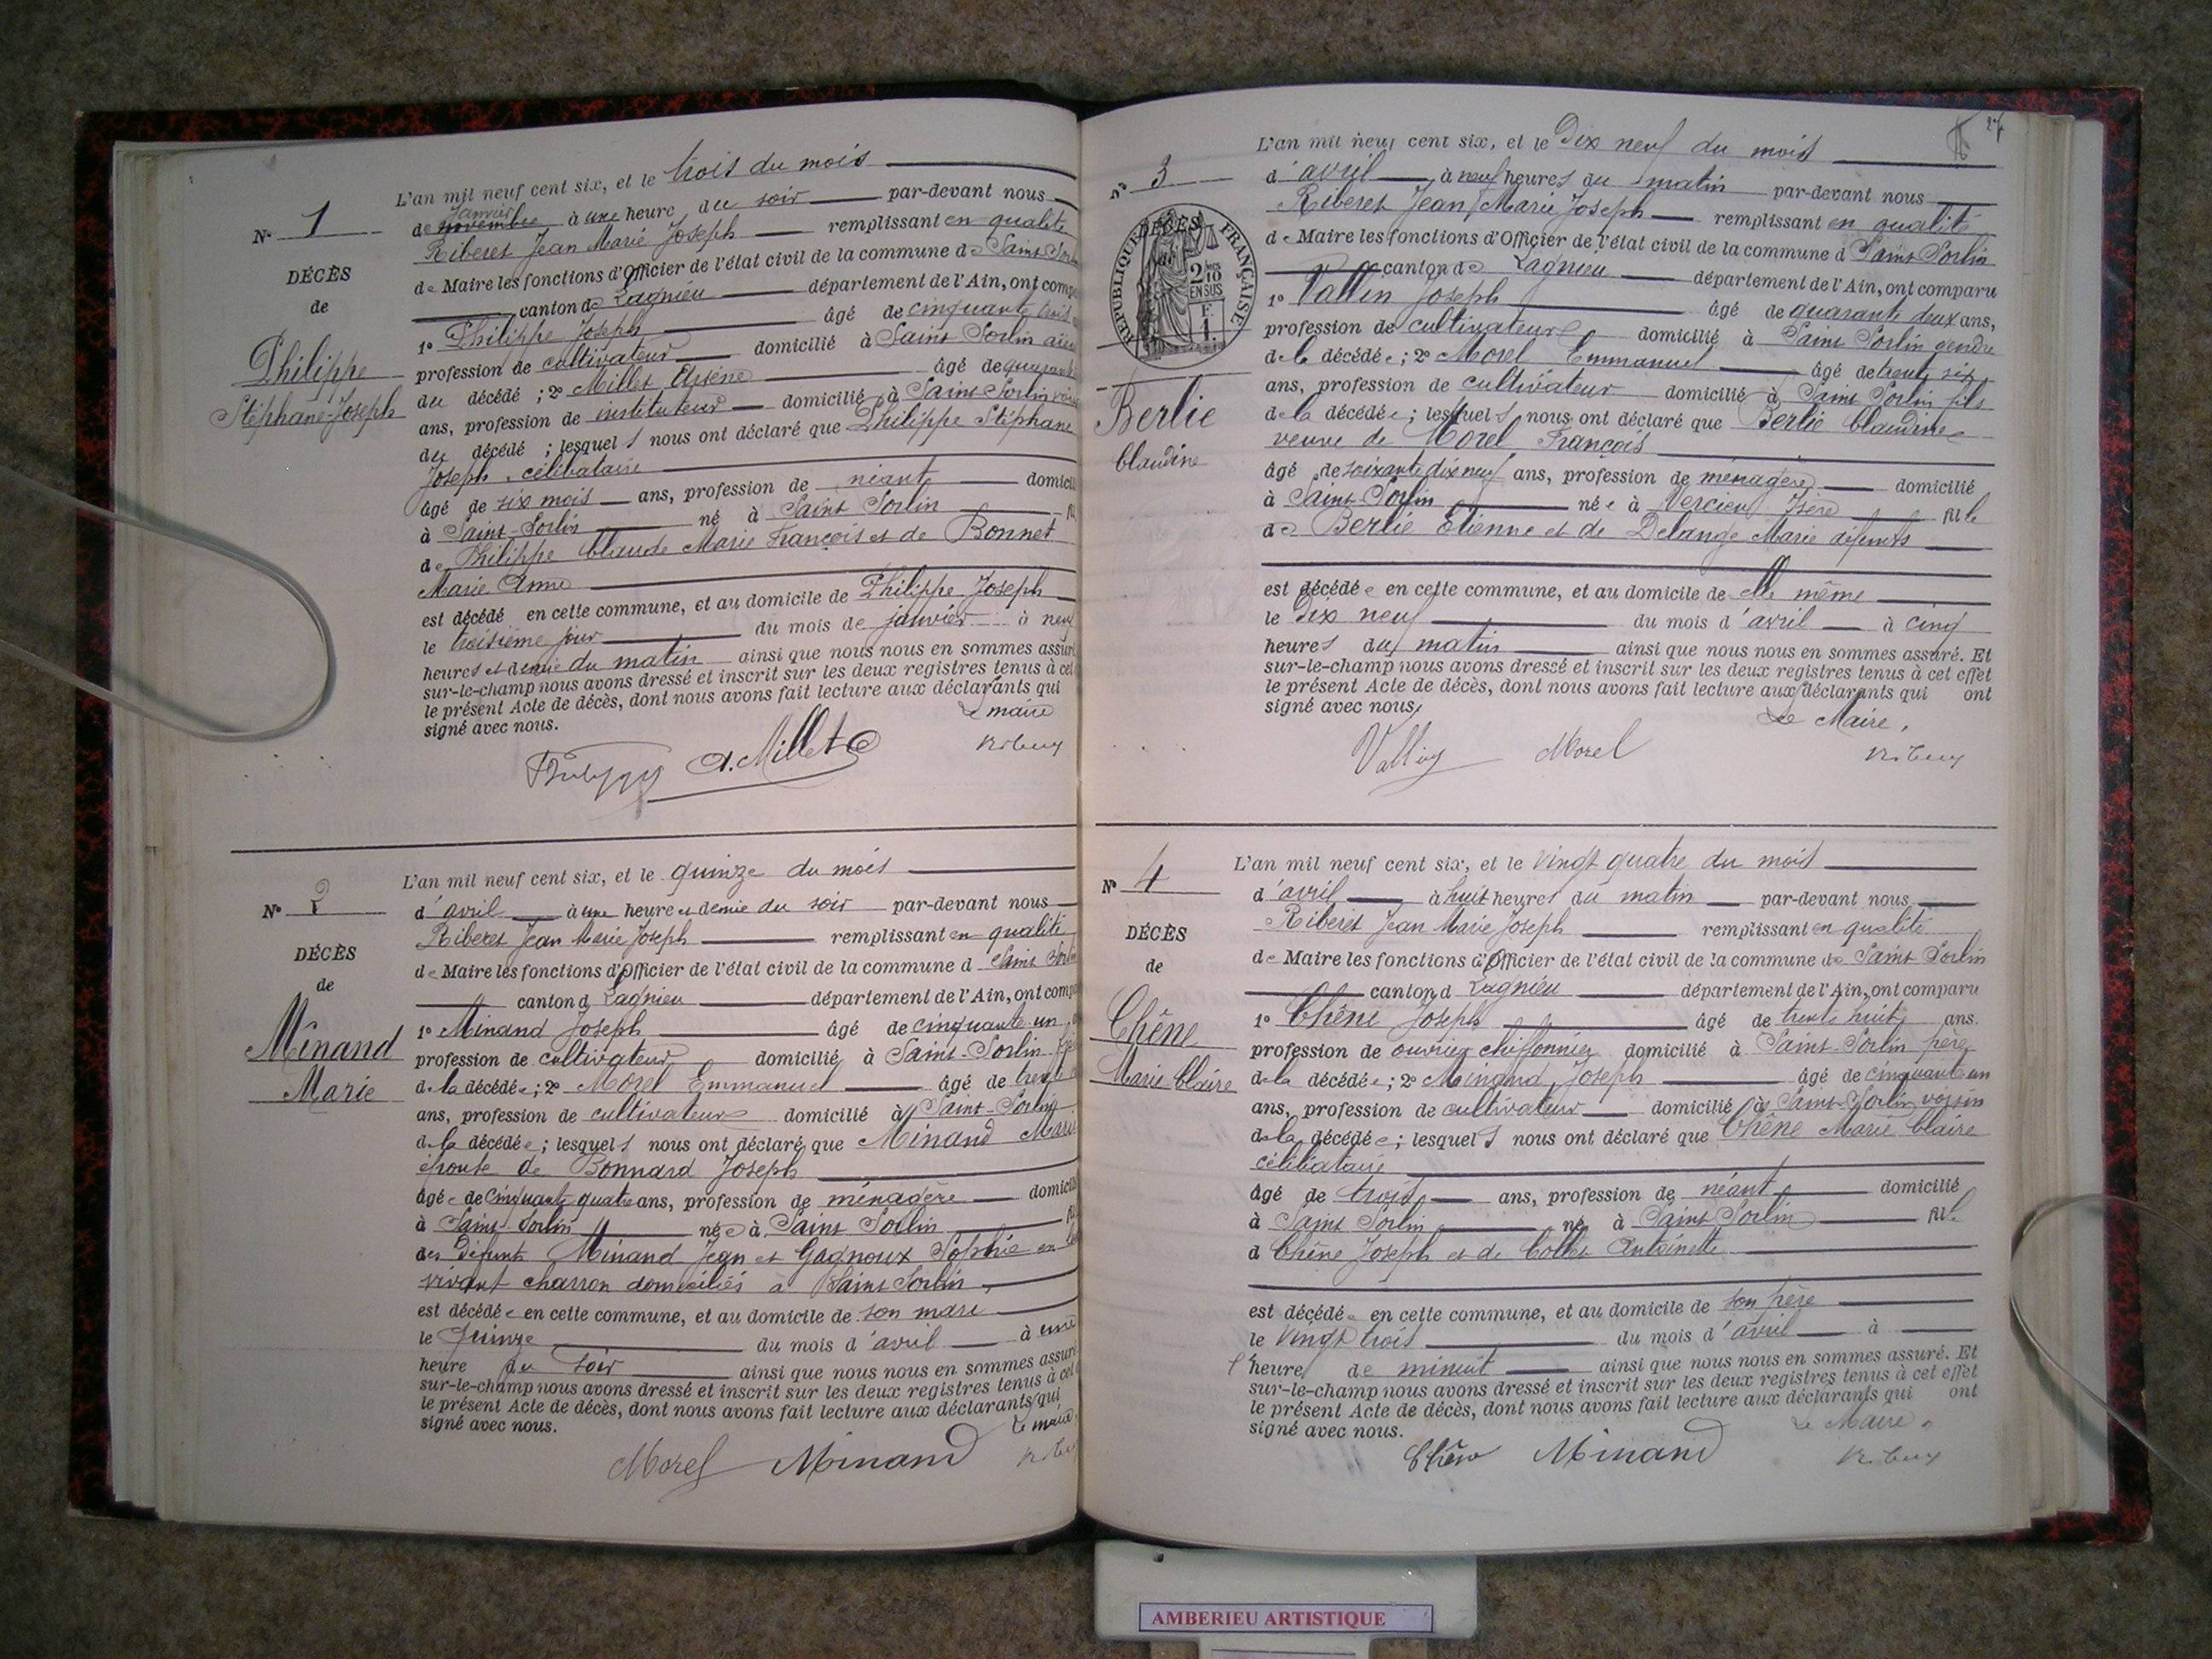 L'an mil neuf cent six, et le trois du mois
Janvier
de novembre à une heure du soir par-devant nous
Riberet Jean Marie Joseph remplissant en qualité
de Maire les fonctions d'Officier de l'état civil de la commune de Saint Sorlin
canton de Lagnieu département de l'Ain, ont comp
1º Philippe Joseph âgé de cinquante trois
profession de cultivateur domicilié à Saint Sorlin aïeul
du décédé ; 2º Millet Arsène âgé de quarante
ans, profession de instituteur domicilié à Saint Sorlin voisin
du décédé ; lesquels nous ont déclaré que Philippe Stéphane
Joseph, célibataire
âgé de six mois ans, profession de néant domicil
à Saint-Sorlin né à Saint Sorlin fi
de Philippe Claude Marie François et de Bonnet
Marie Anne
est décédé en cette commune, et au domicile de Philippe Joseph
le troisième jour du mois de janvier à neuf
heures et demie du matin ainsi que nous nous en sommes assuré
sur-le-champ nous avons dressé et inscrit sur les deux registres tenus à cet
le présent Acte de décès, dont nous avons fait lecture aux déclarants qui
signé avec nous.
Le maire
A. Millet
Nº 1
DÉCÈS
de
Philippe
Stéphane-Joseph
L'an mil neuf cent six, et le quinze du mois
d'avril à une heure et demie du soir par-devant nous
Riberet Jean Marie Joseph remplissant en qualité
de Maire les fonctions d'Officier de l'état civil de la commune d Saint Sorlin
canton d Lagnieu département de l'Ain, ont comp
1º Minand Joseph âgé de cinquante un
profession de cultivateur domicilié à Saint-Sorlin
de la décédée ; 2º Morel Emmanuel âgé de trente
ans, profession de cultivateur domicilié à Saint-Sorlin
de la décédée ; lesquels nous ont déclaré que Minand Marie
épouse de Bonnard Joseph
âgée de cinquante quatre ans, profession de ménagère domicil
à Saint-Sorlin née à Saint Sorlin
des défunts Minand Jean et Gagnoux Sophie en
vivant charron domiciliés à Saint Sorlin
est décédée en cette commune, et au domicile de son mari
le Quinze du mois d'avril à une
heure du soir ainsi que nous nous en sommes assuré
sur-le-champ nous avons dressé et inscrit sur les deux registres tenus à cet
le présent Acte de décès, dont nous avons fait lecture aux déclarants qui
signé avec nous.
Le maire
Morel Minand
Nº 2
DÉCÈS
de
Minand
Marie
L'an mil neuf cent six, et le Dix neuf du mois
d'avril à neuf heures du matin par-devant nous
Riberet Jean Marie Joseph remplissant en qualité
de Maire les fonctions d'Officier de l'état civil de la commune d Saint Sorlin
canton de Lagnieu département de l'Ain, ont comparu
1º Vallin Joseph âgé de quarante deux ans,
profession de cultivateur domicilié à Saint Sorlin gendre
de la décédée ; 2º Morel Emmanuel âgé de trente six
ans, profession de cultivateur domicilié à Saint Sorlin fils
de la décédée ; lesquels nous ont déclaré que Berlie Claudine
veuve de Morel François
âgé de soixante dix neuf ans, profession de ménagère domicilié
à Saint-Sorlin née à Vercieu Isère fille
de Berlie Etienne et de Delange Marie défunts
est décédée en cette commune, et au domicile de elle même
le Dix neuf du mois d'avril à cinq
heures du matin ainsi que nous nous en sommes assuré. Et
sur-le-champ nous avons dressé et inscrit sur les deux registres tenus à cet effet
le présent Acte de décès, dont nous avons fait lecture aux déclarants qui ont
signé avec nous,
Le Maire,
Vallin Morel
Nº 3
RÉPUBLIQUE FRANÇAISE
DÉCÈS
2/10 EN SUS
F. 1.
Berlie
Claudine
L'an mil neuf cent six, et le vingt quatre du mois
d'avril à huit heures du matin par-devant nous
Riberet Jean Marie Joseph remplissant en qualité
de Maire les fonctions d'Officier de l'état civil de la commune de Saint Sorlin
canton d Lagnieu département de l'Ain, ont comparu
1º Chêne Joseph âgé de trente huit ans.
profession de ouvrier chiffonnier domicilié à Saint-Sorlin père
de la décédée ; 2º Minand Joseph âgé de cinquante un
ans, profession de cultivateur domicilié à Saint-Sorlin voisin
de la décédée ; lesquels nous ont déclaré que Chêne Marie Claire
célibataire
âgé de trois ans, profession de néant domicilié
à Saint Sorlin né à Saint Sorlin fille
d Chêne Joseph et de Collet Antoinette
est décédée en cette commune, et au domicile de son père
le vingt trois du mois d'avril à
l'heure de minuit ainsi que nous nous en sommes assuré. Et
sur-le-champ nous avons dressé et inscrit sur les deux registres tenus à cet effet
le présent Acte de décès, dont nous avons fait lecture aux déclarants qui ont
signé avec nous.
Le Maire
Chêne Minand
Nº 4
DÉCÈS
de
Chêne
Marie Claire
AMBERIEU ARTISTIQUE